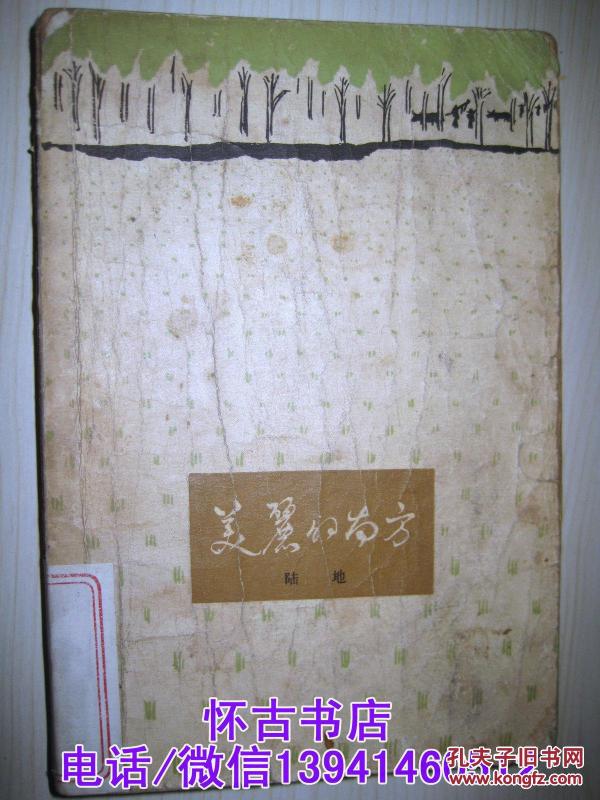 美麗的南方
陆 地
怀古书店
电话/微信
孔夫子旧书网
www.kongfz.com